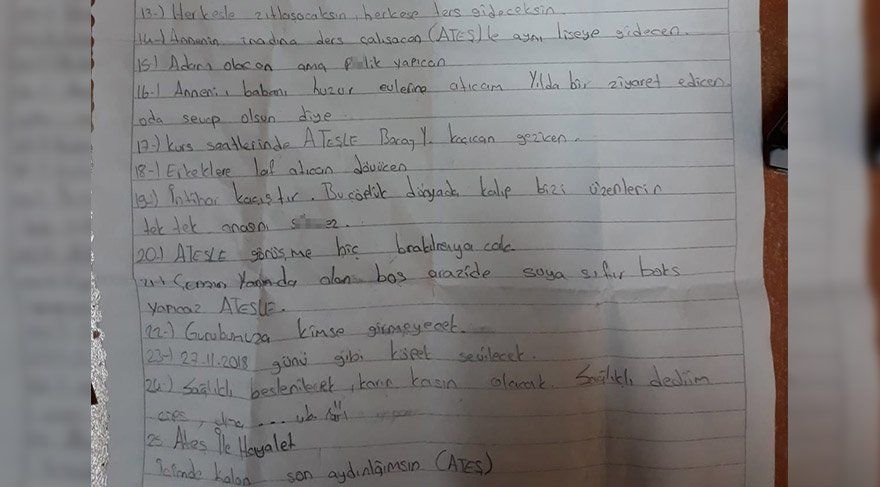 13-) Herkesle zıtlaşacaksın, herkese ters gideceksin
14-) Annenin inadına ders çalışacan (ATEŞ)le aynı liseye gidecen.
15-) Adam olacan ama p lik yapıcan
16-) Anneni, babanı huzur evlerine atıcam Yılda bir ziyaret edicen
oda sevap olsun diye
17-) Kurs saatlerinde ATEŞLE Y. kaçıcan geziken.
18-) Erkeklere laf atıcan dövücen
19-) İntihar kaçıştır. Bu çöplük dünyada kalıp bizi üzenlerin
tek tek anasını s ez.
20-) ATEŞLE görüşme hiç bırakılmayacak
21-) yanında olan boş arazide suya sıfır boks
yapıcaz ATEŞLE.
22-) Gurubumuza kimse girmeyecek.
23-) 27.11.2018 günü gibi köpek sevilecek.
24-) Sağlıklı beslenilecek, karın kasın olacak. Sağlıklı dediim
cips, ... vb
25- Ateş İle Hayalet
İçimde kalan son aydınlığımsın (ATEŞ)